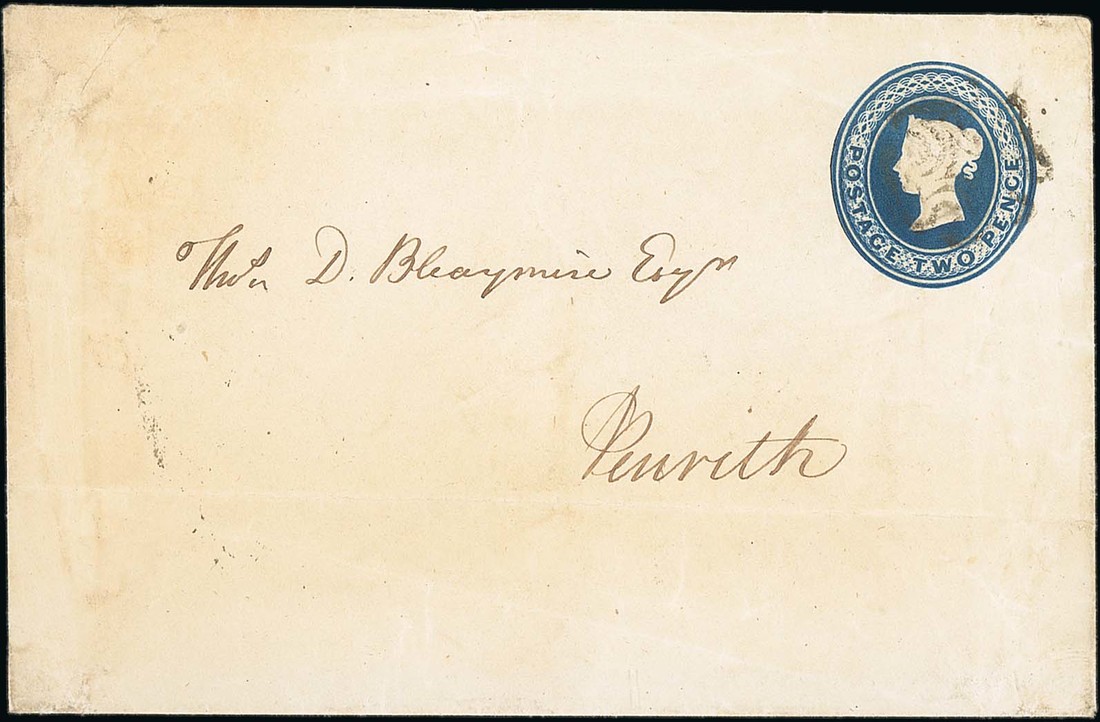 POSTAGE TWO PENCE
D. Bleaymire Esqr
Penrith